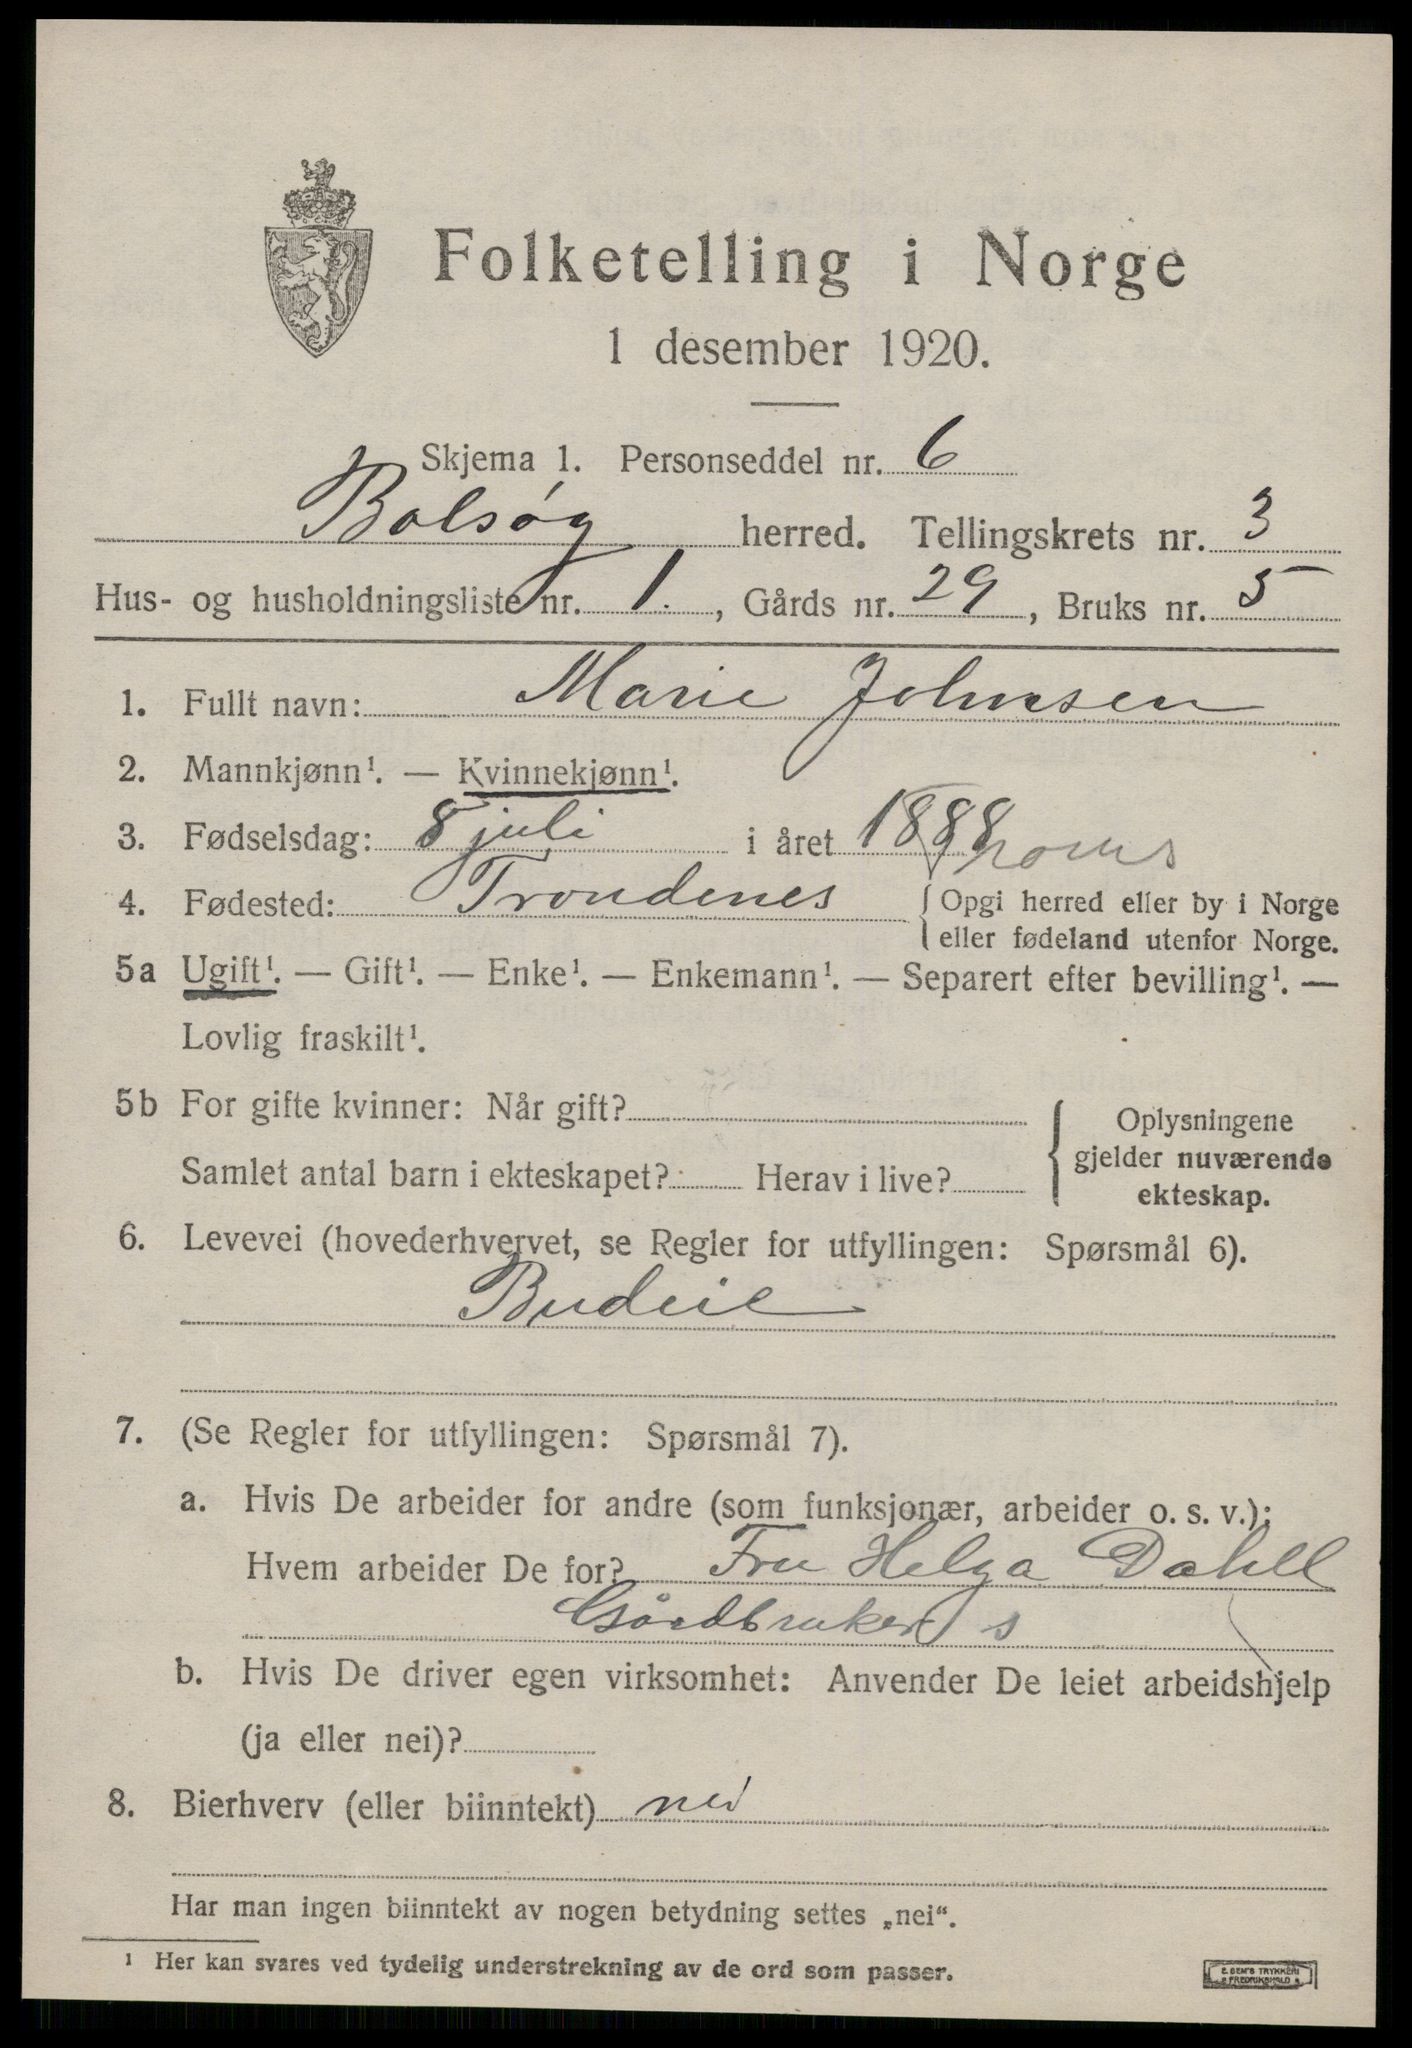 Folketelling i Norge
1 desember 1920.
Skjema 1. Personseddel nr. 6
Bolsøy herred. Tellingskrets nr. 3
Hus- og husholdningsliste nr. 1., Gårds nr. 29, Bruks nr. 5
1. Fullt navn: Marie Johnsen
2. Mannkjønn¹. — Kvinnekjønn¹.
3. Fødselsdag: 8 juli i året 1888
4. Fødested: Trondenes { Opgi herred eller by i Norge
eller fødeland utenfor Norge.
5a Ugift¹. — Gift¹. — Enke¹. — Enkemann¹. — Separert efter bevilling¹. —
Lovlig fraskilt¹.
5b For gifte kvinner: Når gift?
Samlet antal barn i ekteskapet? Herav i live?
Oplysningene
gjelder nuværende
ekteskap.
6. Levevei (hovederhvervet, se Regler for utfyllingen: Spørsmål 6).
Budeie
7. (Se Regler for utfyllingen: Spørsmål 7).
a. Hvis De arbeider for andre (som funksjonær, arbeider o. s. v.):
Hvem arbeider De for? Fru Helga Dahll
Gårdbruker s
b. Hvis De driver egen virksomhet: Anvender De leiet arbeidshjelp
(ja eller nei)?
8. Bierhverv (eller biinntekt) nei
Har man ingen biinntekt av nogen betydning settes „nei“.
¹ Her kan svares ved tydelig understrekning av de ord som passer.
E. SEM'S TRYKKERI
FREDRIKSHALD